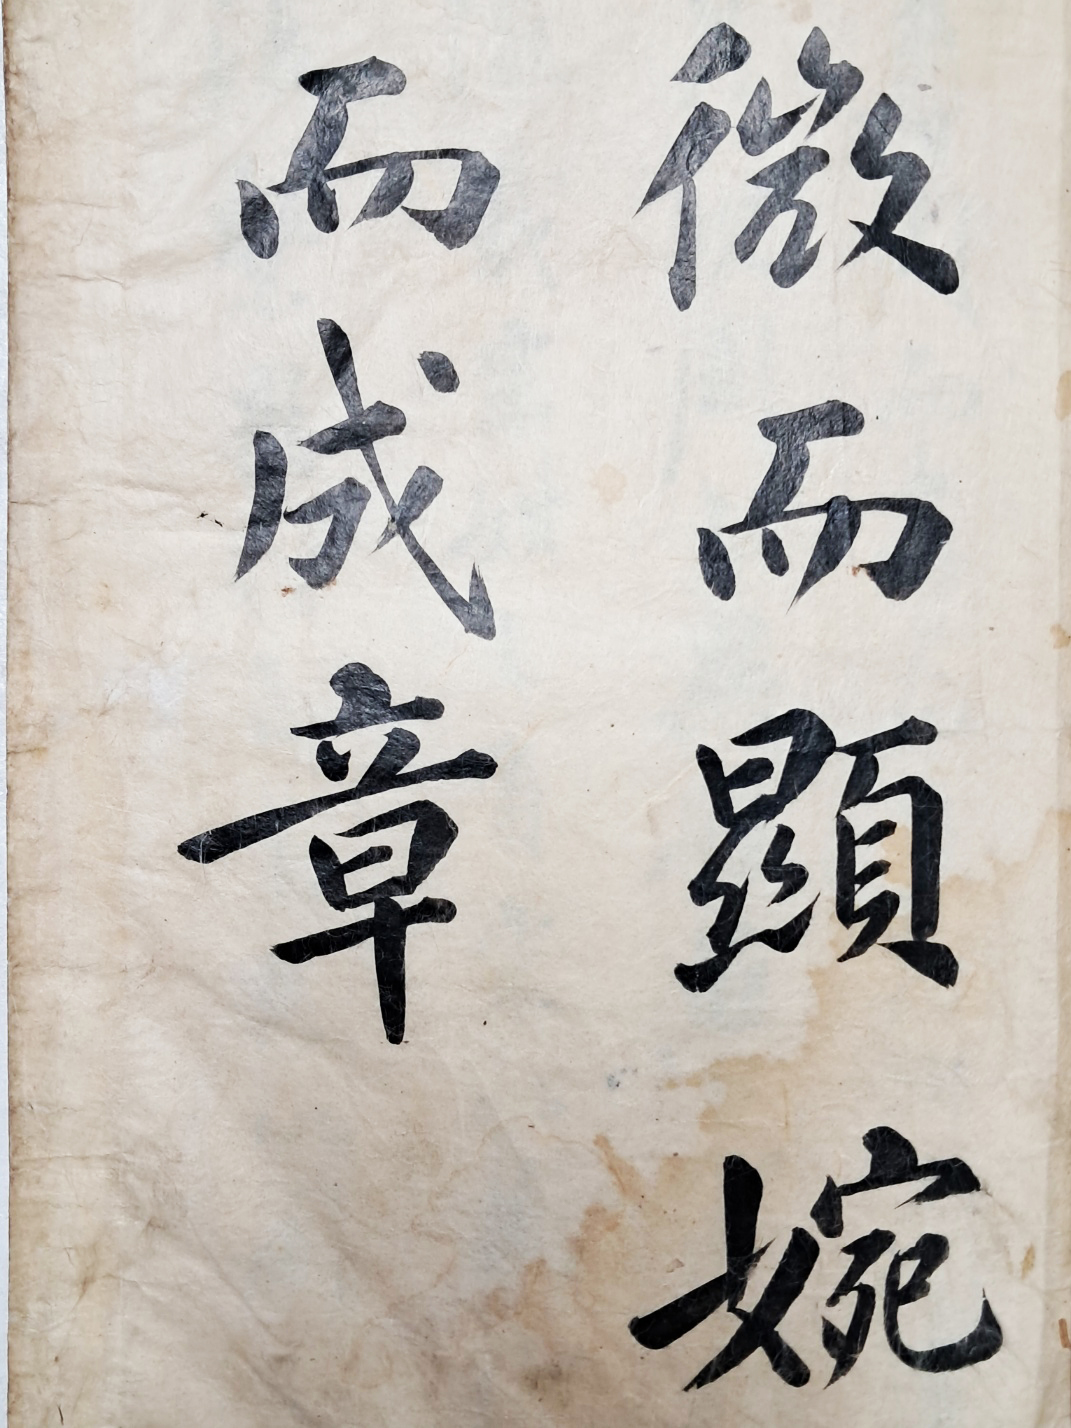 微而顯婉
而成章